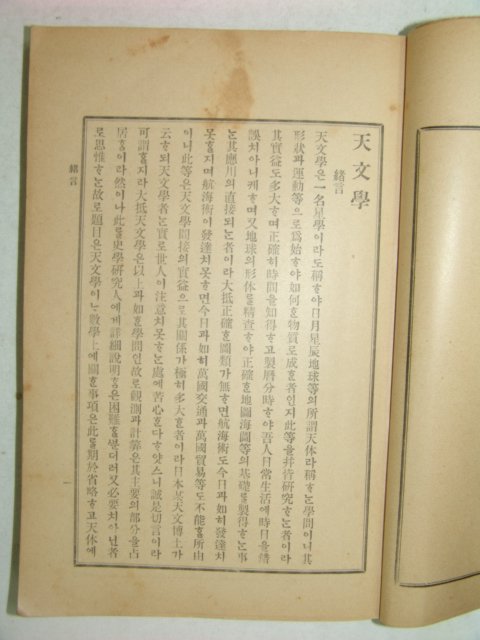 天文學
緖言
天文學은一名星學이라도稱ᄒᆞ야日月星辰地球等의所謂天体라稱ᄒᆞᄂᆞᆫ學問이니其
形狀과運動等으로爲始ᄒᆞ야如何ᄒᆞᆫ物質로成ᄒᆞᆫ者인지此等을幷皆硏究ᄒᆞᄂᆞᆫ者이라
其實益도多大ᄒᆞ며正確히時間을知得ᄒᆞ고製曆分時ᄒᆞ야吾人日常生活에時日을錯
誤치아니케ᄒᆞ며又地球의形体를精査ᄒᆞ야正確ᄒᆞᆫ地圖海圖等의基礎를製得ᄒᆞᄂᆞᆫ事
ᄂᆞᆫ其應用의直接되ᄂᆞᆫ者이라大抵正確ᄒᆞᆫ圖類가無ᄒᆞ면航海術도今日과如히發達치
못ᄒᆞᆯ지며航海術이發達치못ᄒᆞ면今日과如히萬國交通과萬國貿易等도不能ᄒᆞᆯ所由
이니此等은天文學間接의實益으로其關係가極히多大ᄒᆞᆫ者이라日本某天文博士가
云ᄒᆞ되天文學者ᄂᆞᆫ實로世人이注意치못ᄒᆞᄂᆞᆫ處에苦心ᄒᆞᆫ다ᄒᆞ얏스니誠是切言이라
可謂ᄒᆞᆯ지라大抵天文學은以上과如ᄒᆞᆫ學問인故로觀測과計算은其主要의部分을占
居ᄒᆞᆷ이라然이나此를史學硏究人에게詳細說明ᄒᆞᆷ은困難ᄒᆞᆯᄲᅮᆫ더러又必要치아닌者
로思惟ᄒᆞᄂᆞᆫ故로題目은天文學이ᄂᆞ數學上에關ᄒᆞᆫ事項은此를期於省略ᄒᆞ고天体에
緖言
一